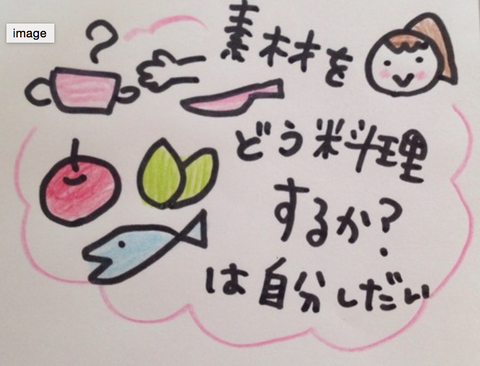 image
素材を
どう料理
するか?
は自分しだい